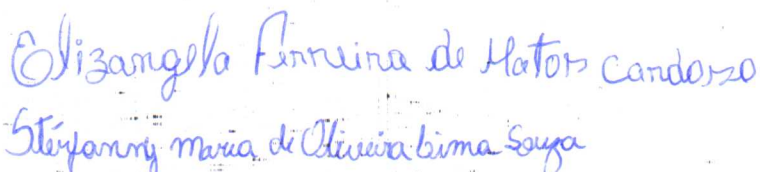 Elizangela Ferreira de Matos Cardoso
Stéfanny maria de Oliveira Lima Souza